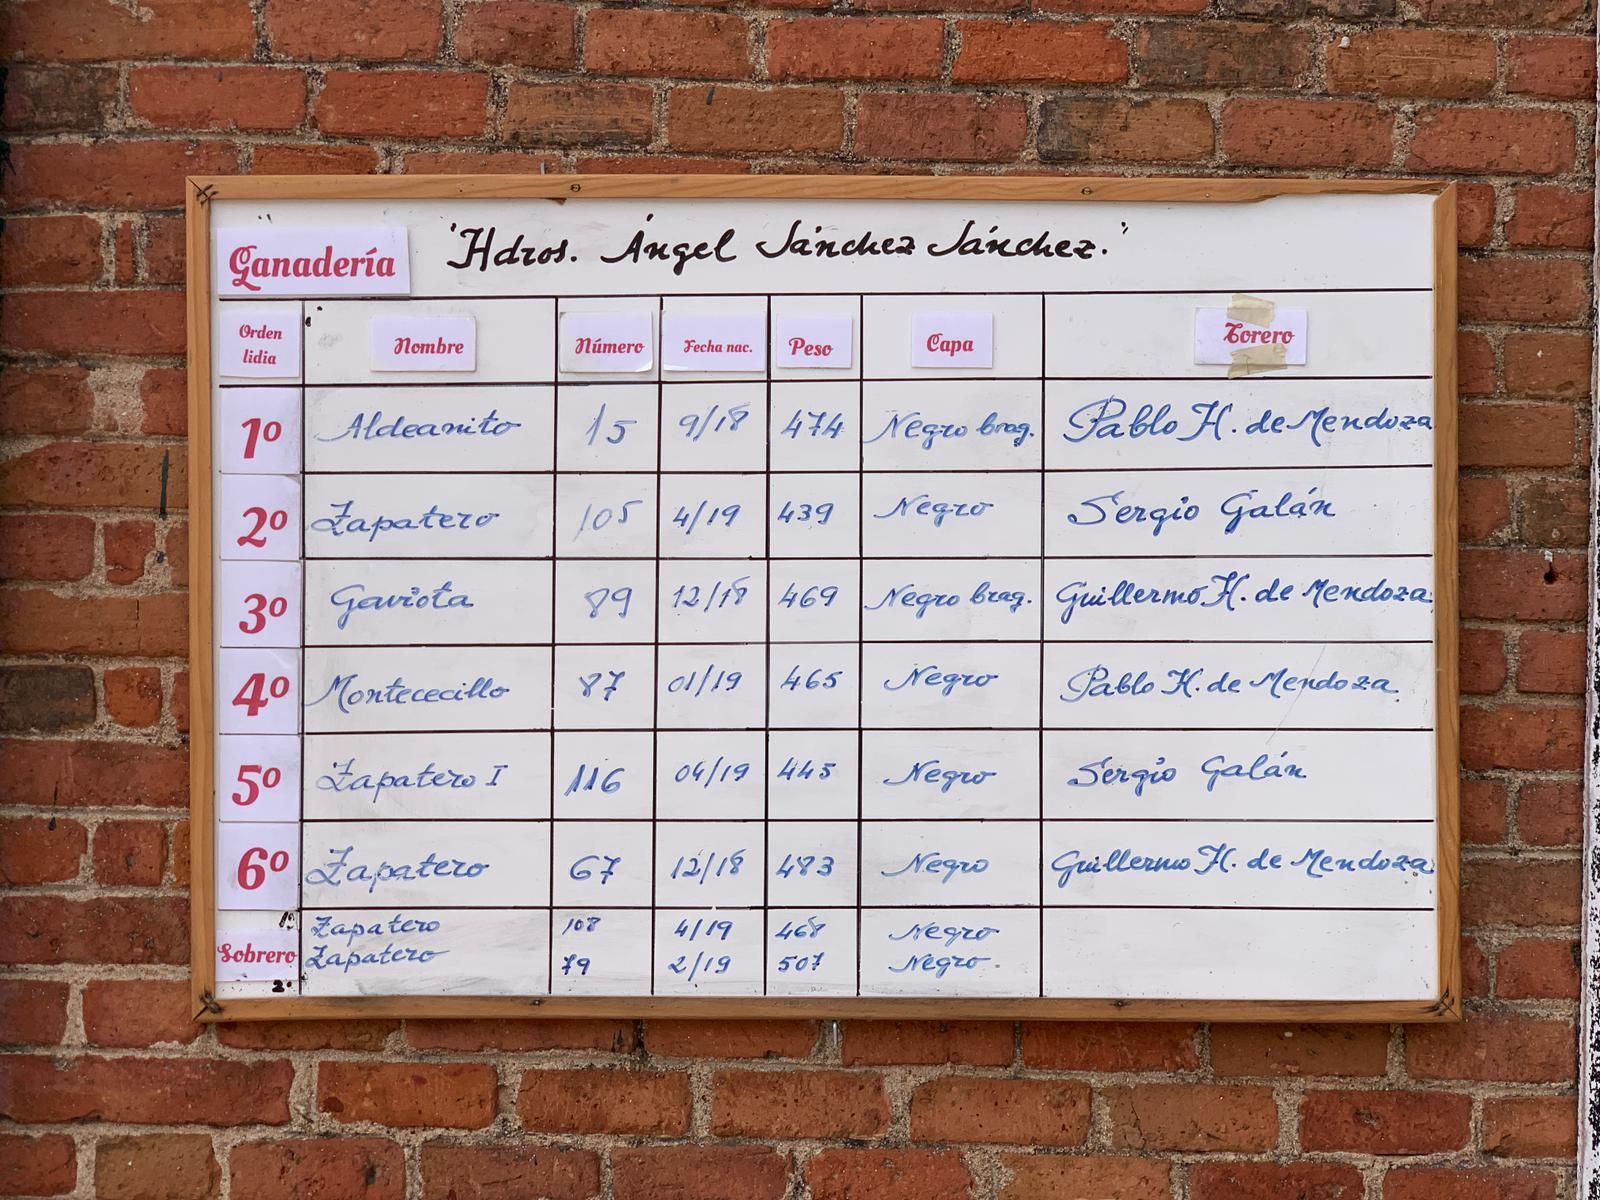 Ganadería "Hdros. Ángel Sánchez Sánchez."
Orden lidia Nombre Número Fecha nac. Peso Capa Torero
1º Aldeanito 15 9/18 474 Negro brag. Pablo H. de Mendoza
2º Zapatero 105 4/19 439 Negro Sergio Galán
3º Gaviota 89 12/18 469 Negro brag. Guillermo H. de Mendoza
4º Montececillo 87 01/19 465 Negro Pablo H. de Mendoza
5º Zapatero I 116 04/19 445 Negro Sergio Galán
6º Zapatero 67 12/18 483 Negro Guillermo H. de Mendoza
1º Zapatero 108 4/19 468 Negro
Sobrero
2º Zapatero 79 2/19 507 Negro